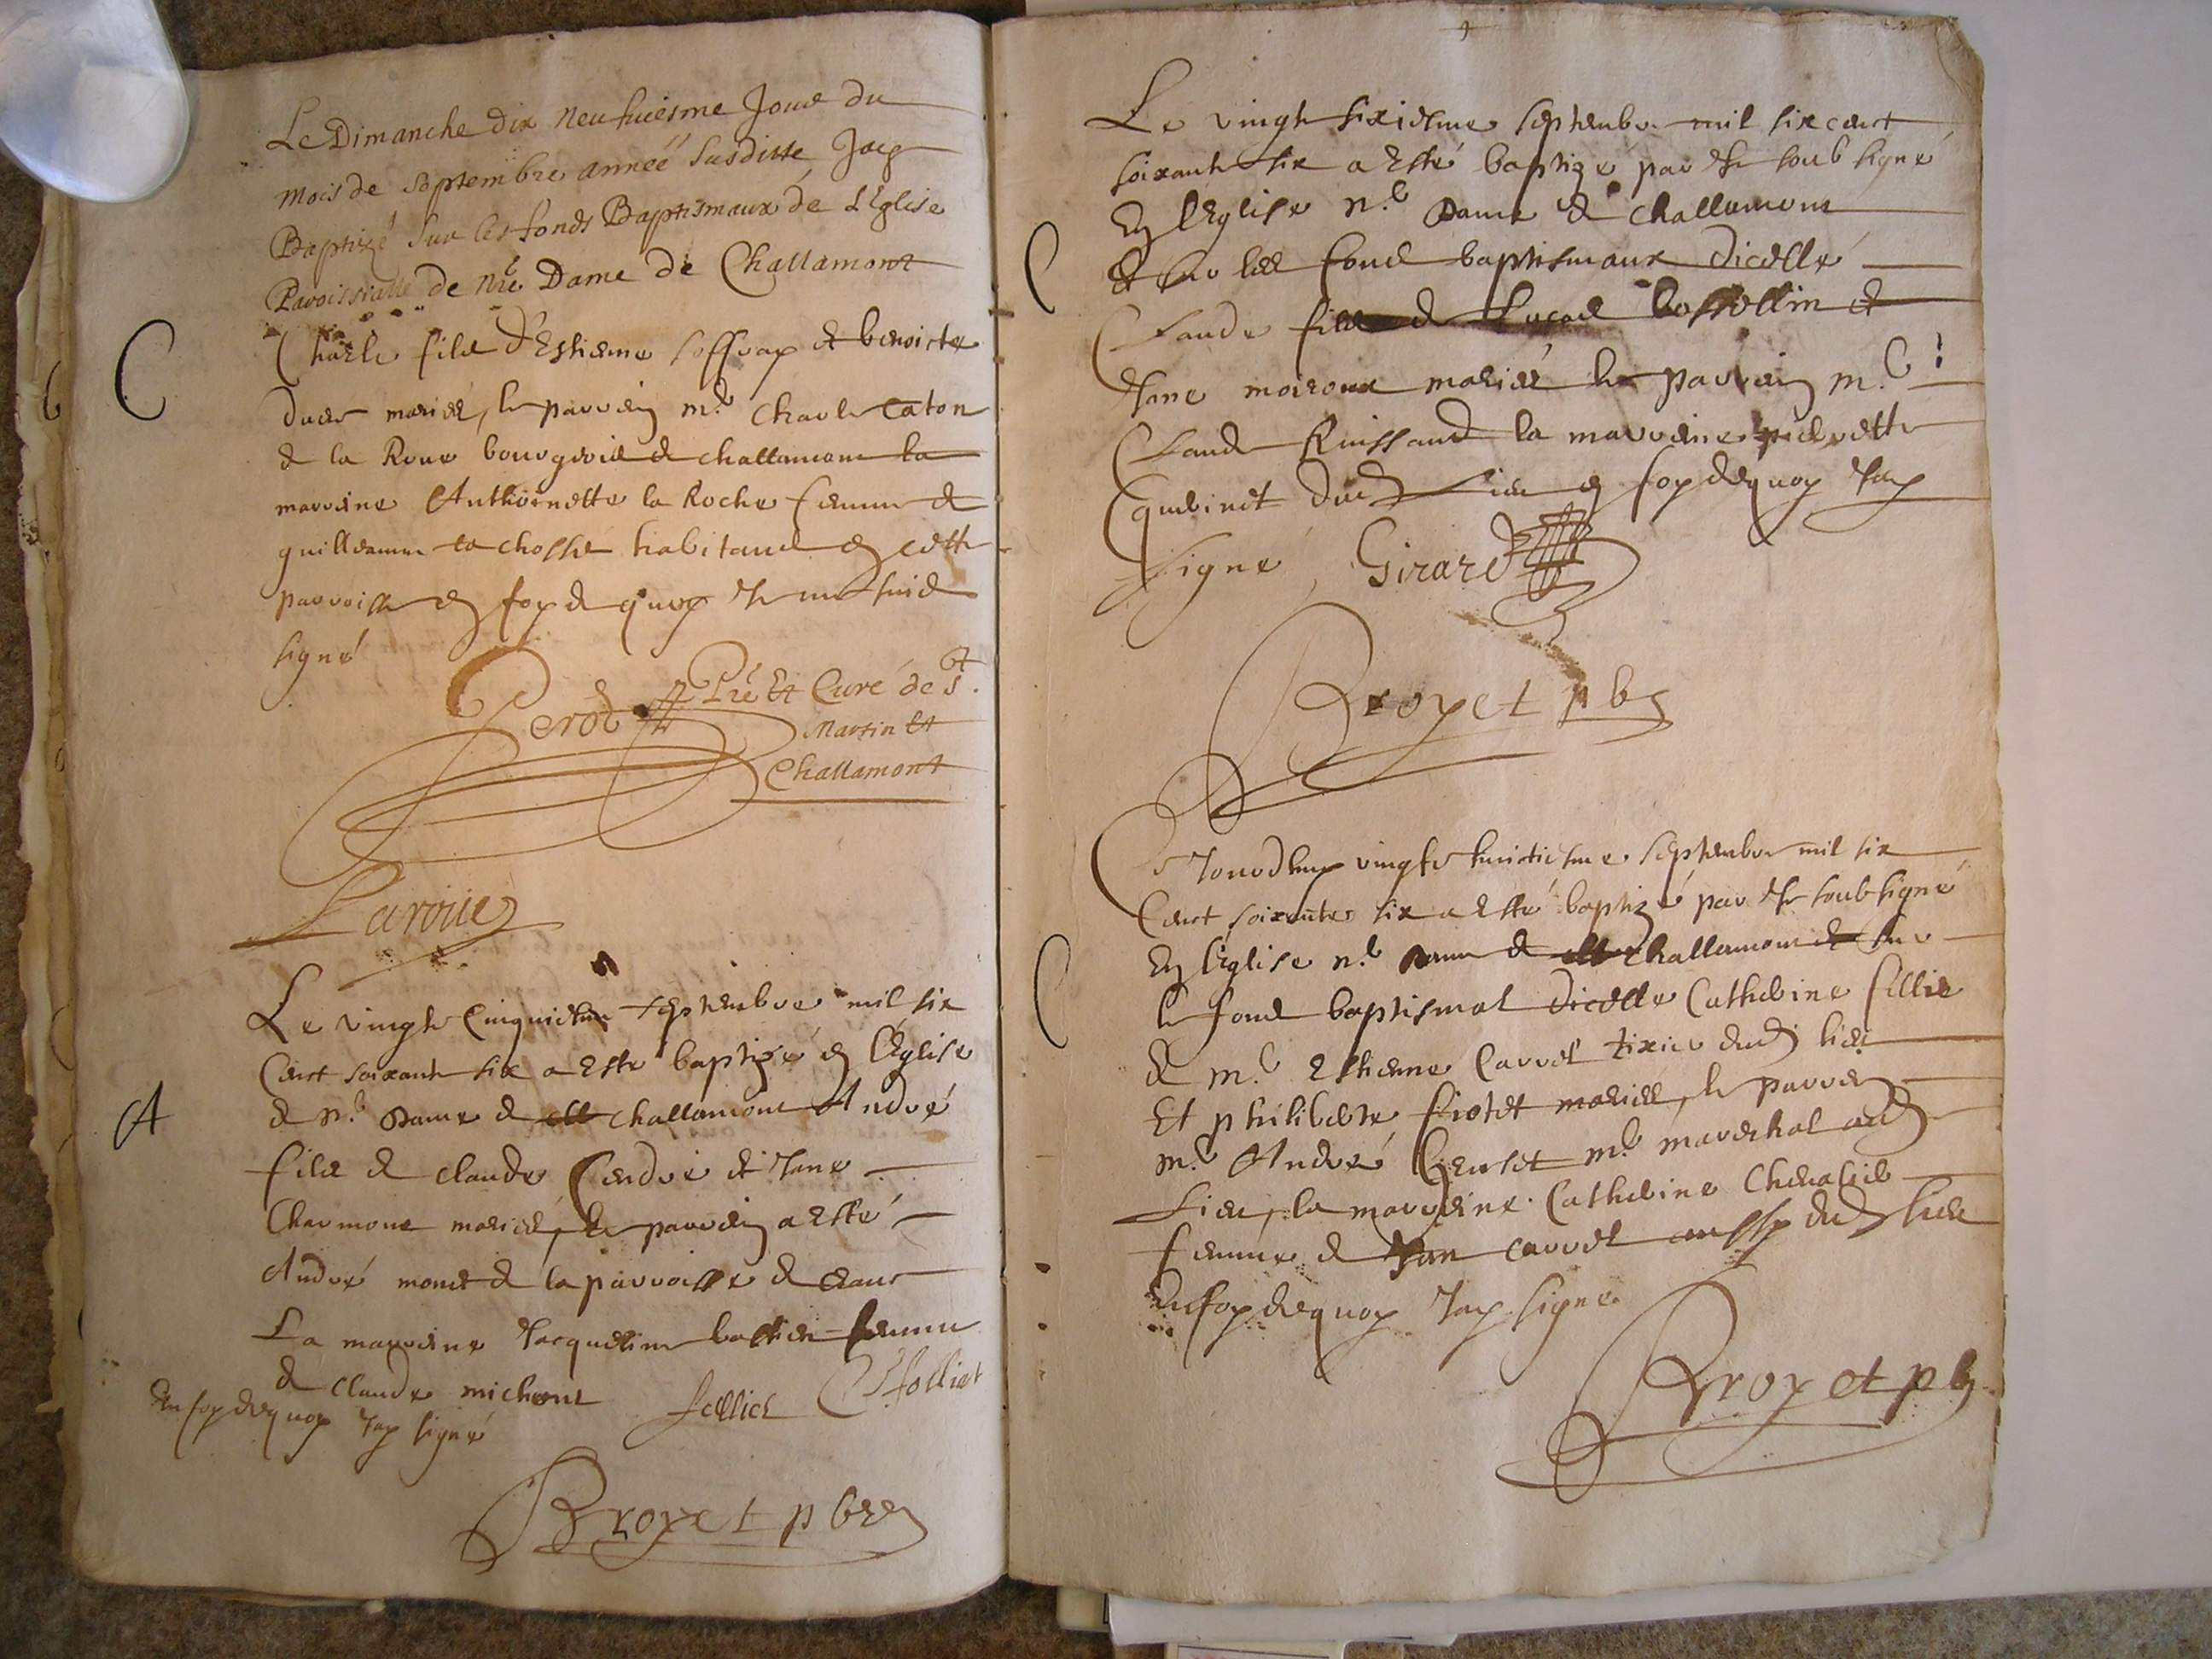 Le Dimanche dix neufuiesme Jour du
mois de Septembre année Susditte Jay
Baptizé Sur les fonds Baptismaux de L'Eglise
Paroissialle de Nre Dame de Challamont
C
Charle fils d'Estienne et benoicte
mariés, le parrein mr Charle Caton
de la Roue bourgeois de challamont la
marreine Anthoinette la Roche femme de
guilleaume la chosse habitans en cette
parroisse en foy de quoy Je me suis
signé
Perod Pre Et Curé de St
Martin Et
Challamont
Laroüe
Le vingt Cinquiesme septembre mil six
Cent soixante six a Esté baptizé en l'Eglise
A
de Ne Dame de challamont André
fils de claude et Jane
Charmont mariés, le parrein a Esté
André monet de la parroisse de
La marreine Jacqueline bastien femme
de claude michont
En foy dequoy Jay signé
Broyet pbre
Le vingt sixiesme septembre mil six cent
soixante six a Esté baptizé par Je soub signé
En l'Eglise ne Dame de challamont
C
et sur les fond baptismaux dicelle
Claude fils de bossellin et
Jane moiroux mariés le parrein me
Claude Ruissand la marreine pierrette
dud Lieu en foy dequoy Jay
signé Girard
Broyet pbr
Ce Jourdhuy vingt huictiesme septembre mil six
Cent soixante six a Esté baptizé par Je soub signé
En l'Eglise ne Dame de challamont et sur
C
le fond baptismal dicelle Catherine fillie
de me Estienne Carrel tixier dud lieu
Et philiberte mariés, le parrein
me André me mareschal aud
Lieu, la marreine Catherine Chevalier
femme de Jan Carrel aussy dud lieu
En foy dequoy Jay signé
Broyet pbr